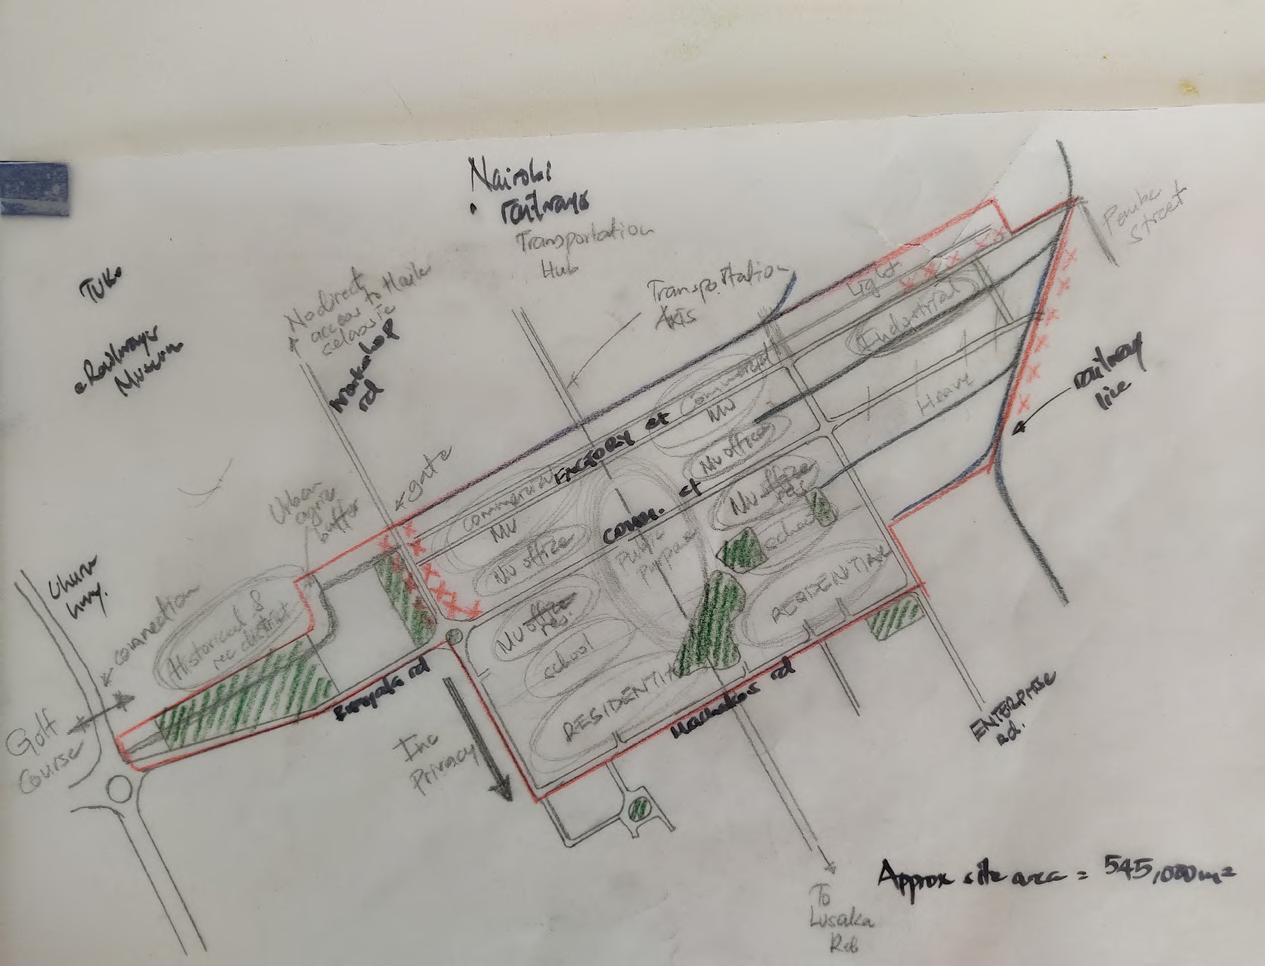 Nairobi
railways
Transportation
Hub
TUK
Railways
Museum
No direct
access
to Haile
selassie
workshop
rd
Transportation
Axis
Pemba
Street
Light
Industrial
Heavy
railway
line
gate
Urban
agric
buffer
FACTORY st
Commercial
MU
MU offices
Comm. st
Commercial
MU
MU office
Public
Purpose
MU office
res.
school
RESIDENTIAL
MU office
res.
school
RESIDENTIAL
Uhuru
hwy.
connection
Historical &
rec district
Golf
Course
Bunyala rd
Inc
Privacy
Machakos rd
ENTERPRISE
rd.
To
Lusaka
Rd
Approx site area = 545,000m²